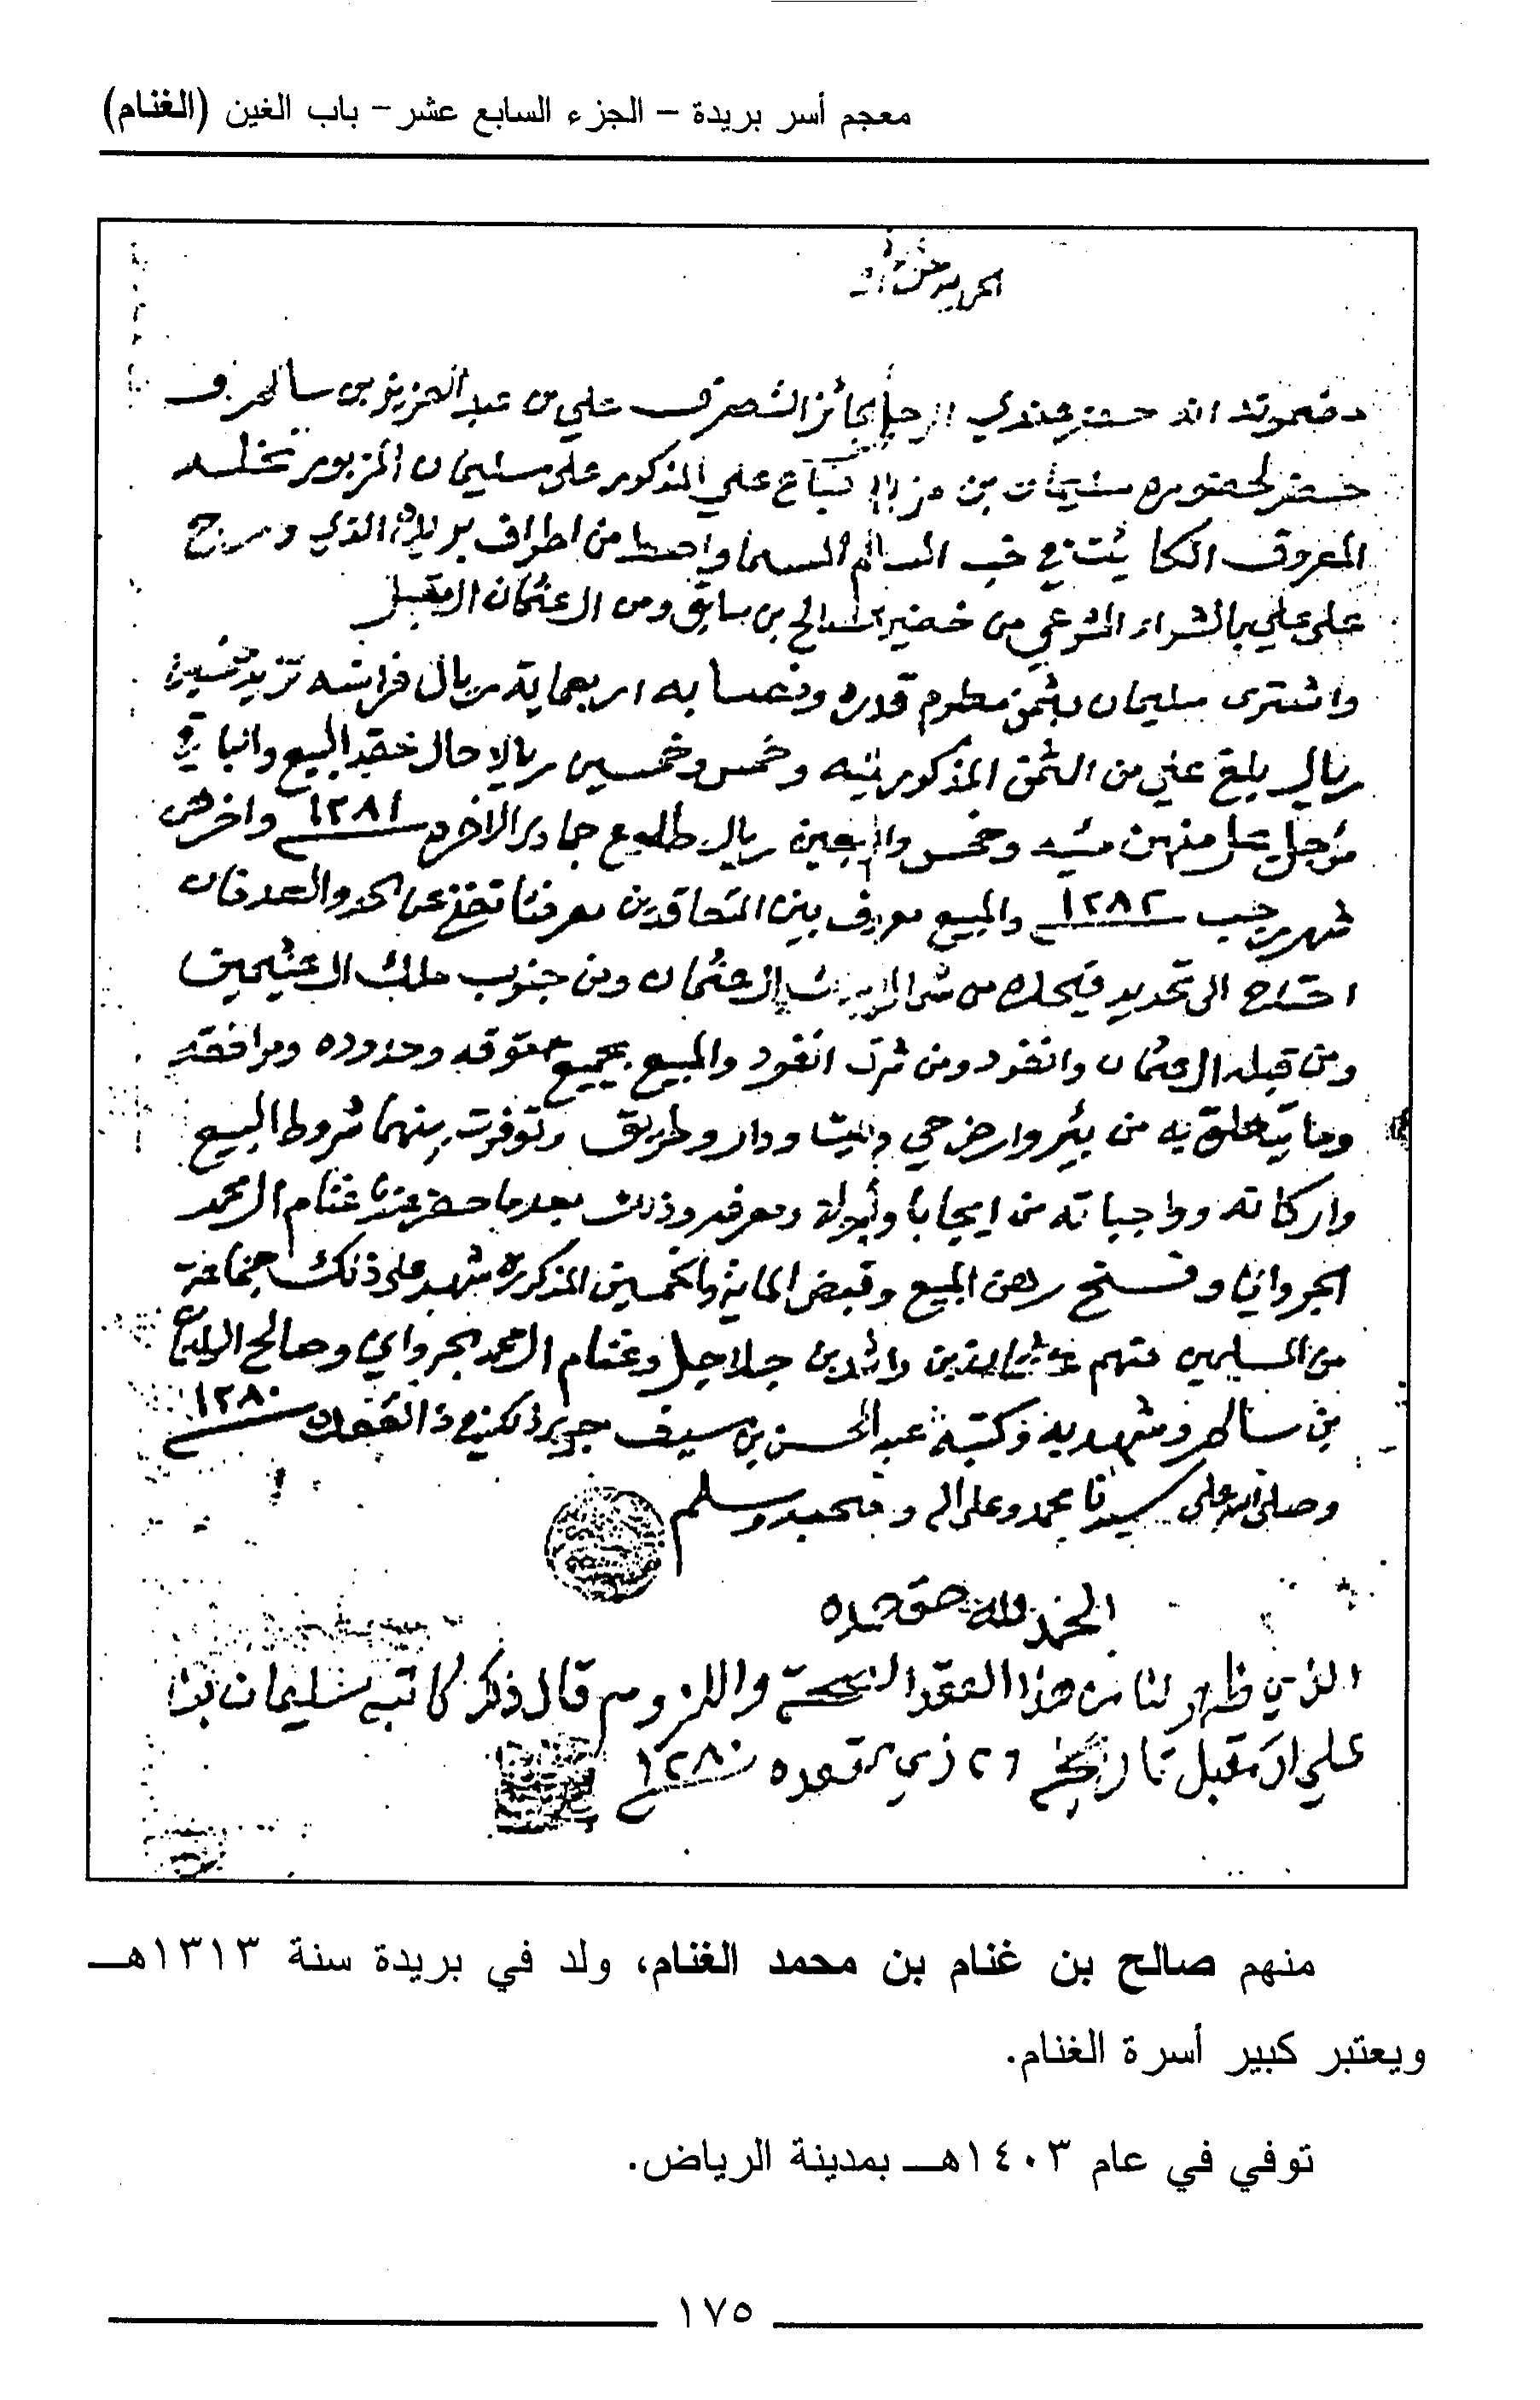 معجم أسر بريدة – الجزء السابع عشر – باب الغين (الغنام)
الله حضر عندي الرجل الجائز التصرف علي بن عبد العزيز بن سالم
حضر لحضوره سليمان بن فباع علي المذكور على سليمان المزبور نخله
المعروف الكائنة في خب المسما واصط من اطراف بريدة الذي درج
على علي بالشراء الشرعي من خضير الصالح بن سابق ومن العثمان المقبل
واشترى سليمان بثمن معلوم قدره ونصابه اربعماية ريال فرانسه تزيد خمسين
ريال بلغ علي من الثمن المذكور ميه وخمس وخمسين ريال حال عقد البيع والباقي
مؤجل يحل منهن ميه وخمس واربعين ريال طلوع جمادى الاخره ١٢٨١ واخرهن
شهر رجب ١٢٨٢ والمبيع معروف بين المتعاقدين معرفتا تغني عن الحد والحد فان
احتاج الى تحديد فيحده من شمال العثمان ومن جنوب ملك العثيمين
ومن قبله العثمان والنفود ومن شرق النفود والمبيع بجميع حقوقه وحدوده ومرافقه
وما يتعلق به من بئر وارض حي وميت ودار وطريق وتوفرت بينهما شروط البيع
واركانه وواجباته من ايجابا وقبولا ومعرفه وذلك بعدما حضر عندنا غنام المحمد
الجرواني وفسخ رهن المبيع وقبض الماية والخمسين المذكوره شهد على ذلك جماعة
من المسلمين منهم راشد بن جلاجل وغنام المحمد الجرواني وصالح
بن سالم وشهد به وكتبه عبد المحسن بن سيف جرى ذلك في ذالقعدة ١٢٨٠
وصلى الله على سيدنا محمد وعلى اله وصحبه وسلم
الحمد لله حق حمده
الذي ظهر لنا من هذا العقد الصحة واللزوم قال ذكر كاتبه سليمان بن
علي آل مقبل تاريخه ٢٦ ذي القعده ١٢٨٠
منهم صالح بن غنام بن محمد الغنام، ولد في بريدة سنة ١٣١٣هـ
ويعتبر كبير أسرة الغنام.
توفي في عام ١٤٠٣هـ بمدينة الرياض.
١٧٥